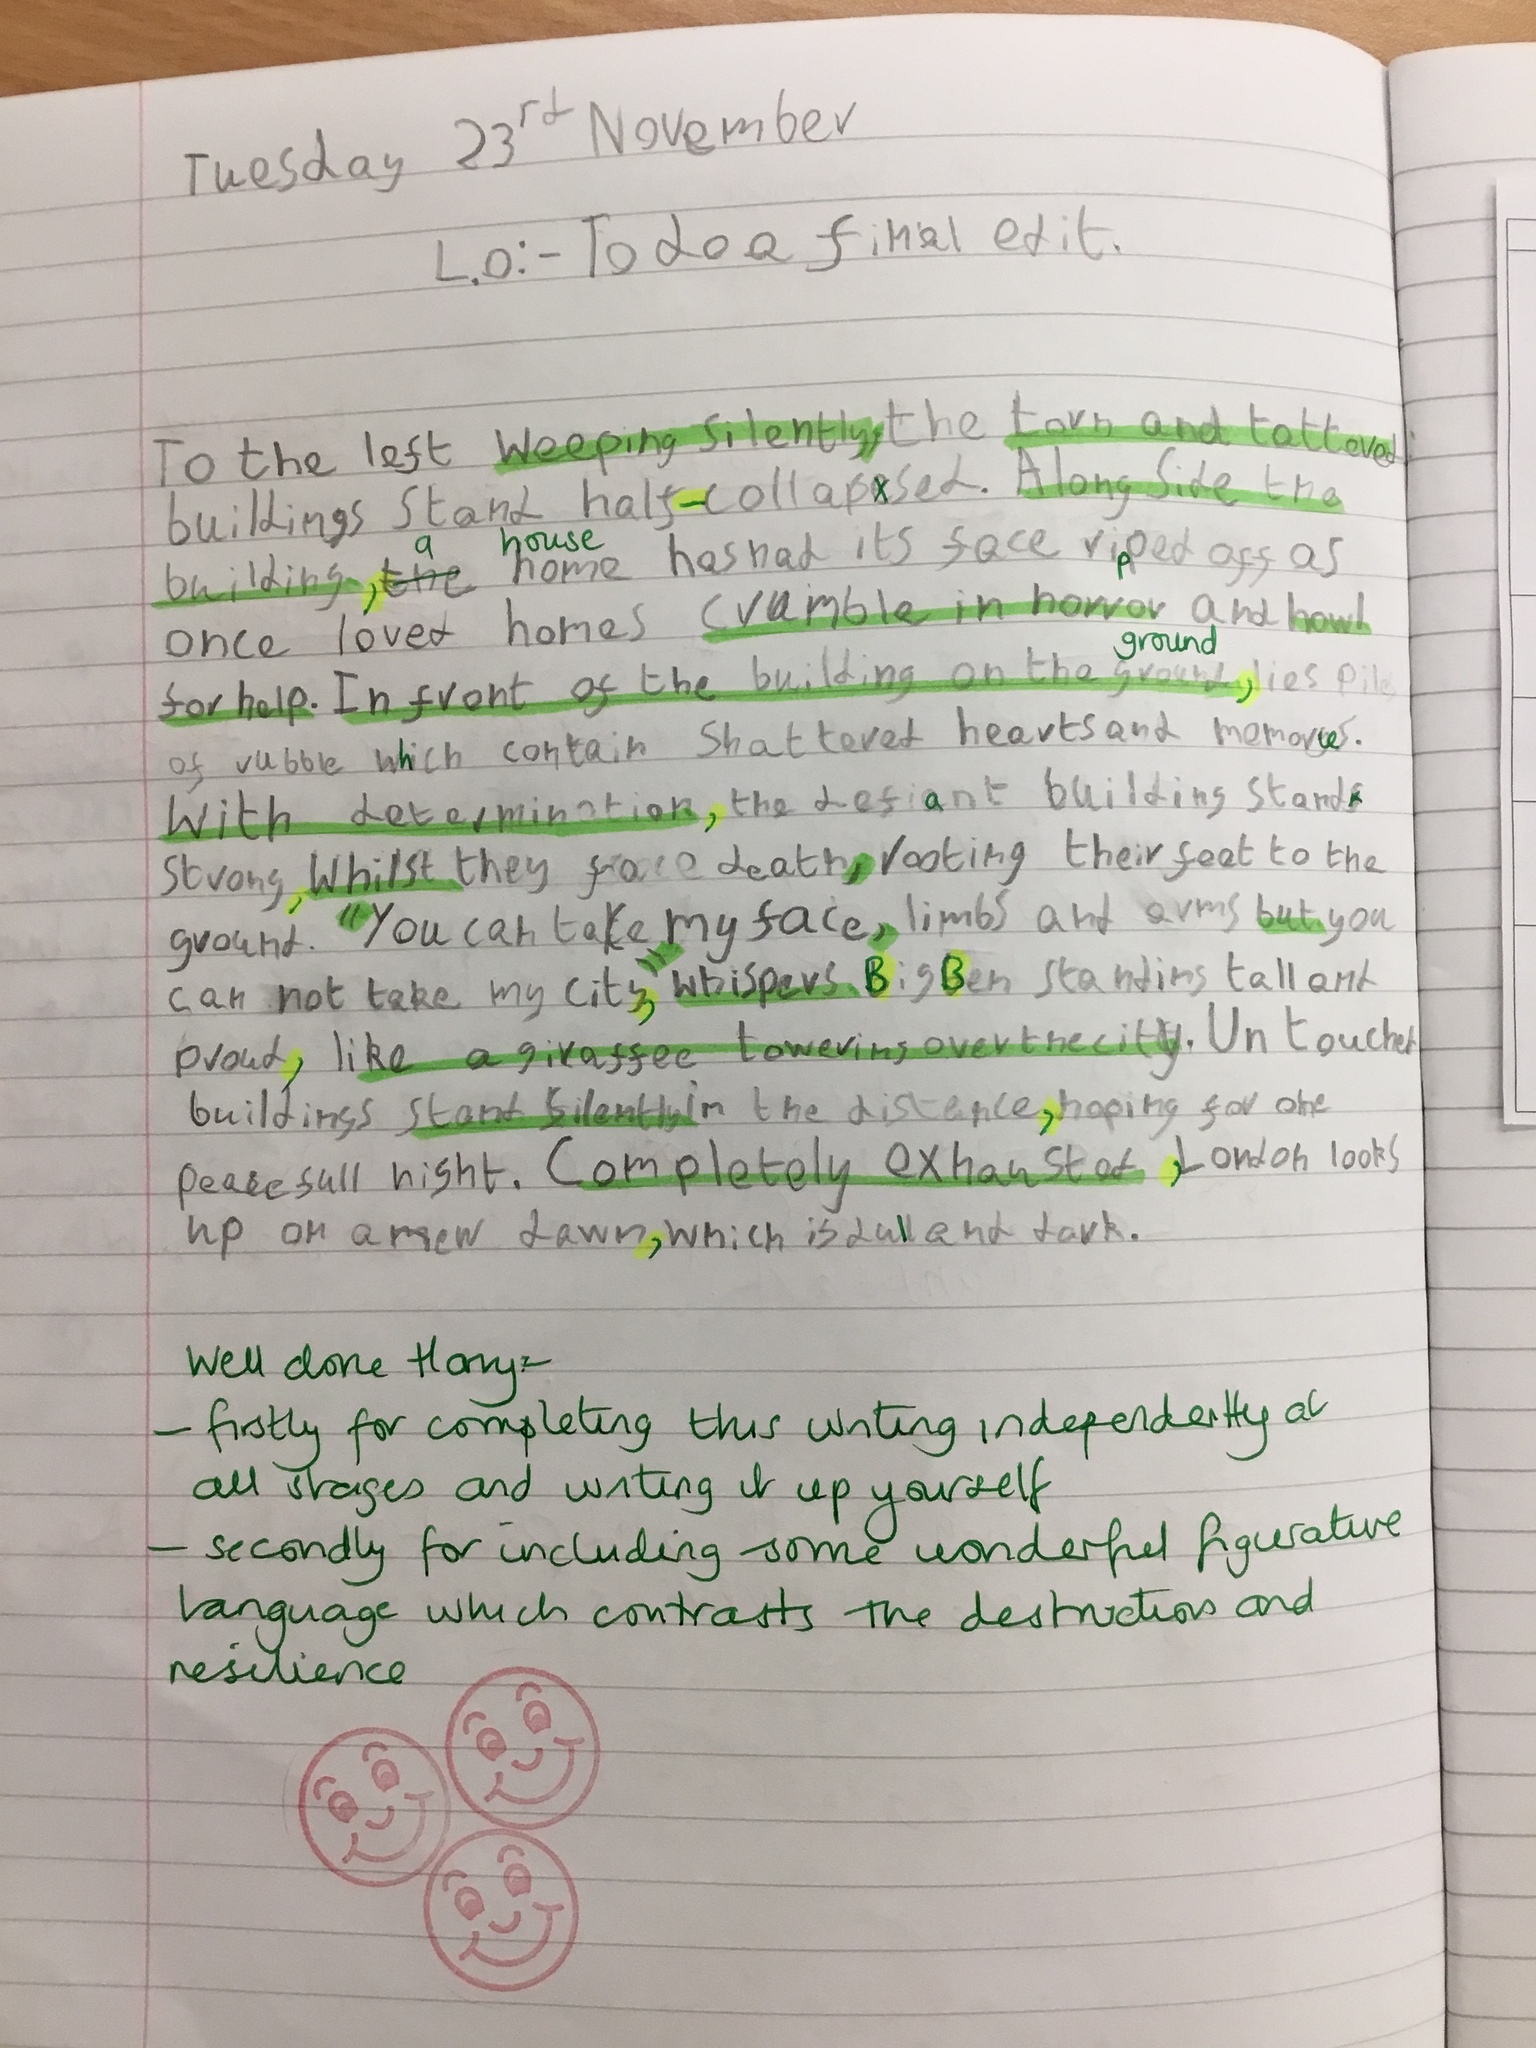 Tuesday 23rd November
L.O:- To do a final edit.
To the left weeping silently, the torn and tattered
buildings stand half-collapsed. Along side the
a house
building, the home has had its face ripped off as
once loved homes crumble in horror and howl
ground
for help. In front of the building on the ground, lies piles
of rubble which contain shattered hearts and memories.
With determination, the defiant building stands
strong, whilst they face death, rooting their feet to the
ground. "You can take my face, limbs and arms but you
can not take my city", whispers Big Ben standing tall and
proud, like a giraffee towering over the city. Un touched
buildings stand silently in the distance, hoping for one
peacefull night. Completely exhausted, London looks
up on a new dawn, which is dull and dark.
Well done Harry:-
- firstly for completing this writing independently at
all stages and writing it up yourself
- secondly for including some wonderful figurative
language which contrasts the destruction and
resilience